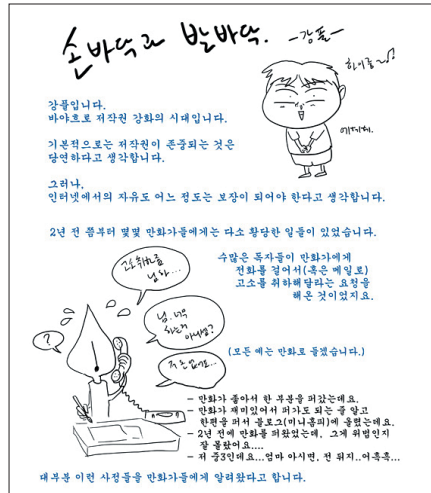 손바닥과 발바닥.
-강풀-
하이루~♪♬
에헤헤.
강풀입니다.
바야흐로 저작권 강화의 시대입니다.
기본적으로는 저작권이 존중되는 것은
당연하다고 생각합니다.
그러나,
인터넷에서의 자유도 어느 정도는 보장이 되어야 한다고 생각합니다.
2년 전 쯤부터 몇몇 만화가들에게는 다소 황당한 일들이 있었습니다.
수많은 독자들이 만화가에게
전화를 걸어서(혹은 메일로)
고소를 취하해달라는 요청을
해온 것이었지요.
고소취하좀
님아...
?
님. 너무
하는거
아녀셈?
저 돈없어요...
(모든 예는 만화로 들겠습니다.)
- 만화가 좋아서 한 부분을 퍼갔는데요.
- 만화가 재미있어서 퍼가도 되는 줄 알고
한편을 퍼서 블로그(미니홈피)에 올렸는데요.
- 2년 전에 만화를 퍼왔었는데, 그게 위법인지
잘 몰랐어요....
- 저 중3인데요...엄마 아시면, 전 뒤지..어흑흑...
대부분 이런 사정들을 만화가들에게 알려왔다고 합니다.